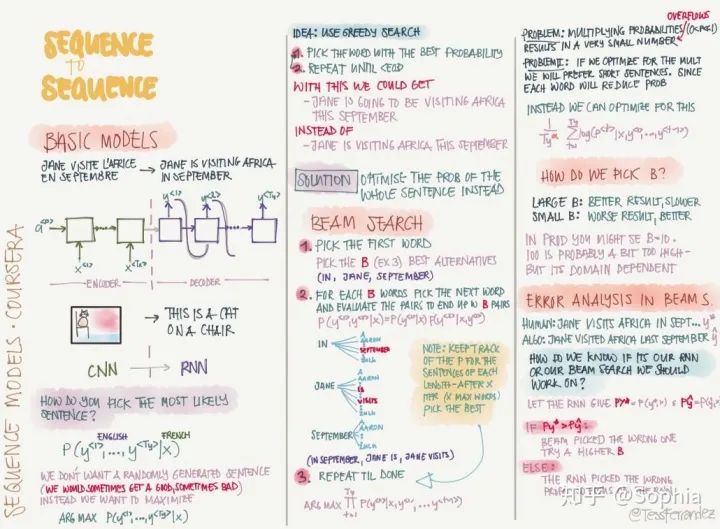 SEQUENCE
TO
SEQUENCE
BASIC MODELS
JANE VISITE L'AFRICE
EN SEPTEMBRE
→ JANE IS VISITING AFRICA
IN SEPTEMBER
y<1> y<2> y<Ty>
a<0>
x<1> x<Tx>
ENCODER DECODER
→ THIS IS A CAT
ON A CHAIR
CNN RNN
HOW DO YOU PICK THE MOST LIKELY
SENTENCE?
ENGLISH FRENCH
P(y<1>,..., y<Ty>|x)
WE DON'T WANT A RANDOMLY GENERATED SENTENCE
(WE WOULD SOMETIMES GET A GOOD, SOMETIMES BAD)
INSTEAD WE WANT TO MAXIMIZE
ARG MAX P(y<1>,...,y<Ty>|x)
SEQUENCE MODELS · COURSERA
IDEA: USE GREEDY SEARCH
1. PICK THE WORD WITH THE BEST PROBABILITY
2. REPEAT UNTIL <EOS>
WITH THIS WE COULD GET
- JANE IS GOING TO BE VISITING AFRICA
THIS SEPTEMBER
INSTEAD OF
- JANE IS VISITING AFRICA THIS SEPTEMBER
SOLUTION OPTIMISE THE PROB OF THE
WHOLE SENTENCE INSTEAD
BEAM SEARCH
1. PICK THE FIRST WORD
PICK THE B (EX 3) BEST ALTERNATIVES
(IN, JANE, SEPTEMBER)
2. FOR EACH B WORDS PICK THE NEXT WORD
AND EVALUATE THE PAIRS TO END UP W B PAIRS
P(y<1>,y<2>|x)=P(y<1>|x) P(y<2>|x,y<1>)
IN
A
AARON
SEPTEMBER
ZULU
JANE
A
AARON
IS
VISITS
ZULU
SEPTEMBER
A
AARON
ZULU
NOTE: KEEP TRACK
OF THE P FOR THE
SENTENCES OF EACH
LENGTH - AFTER X
ITER (X MAX WORDS)
PICK THE BEST
(IN SEPTEMBER, JANE IS, JANE VISITS)
3. REPEAT TIL DONE
ARG MAX ∏ P(y<t>|x,y<1>,...y<t-1>)
Ty
t=1
OVERFLOWS
PROBLEM: MULTIPLYING PROBABILITIES (0<P<1)
RESULTS IN A VERY SMALL NUMBER
PROBLEM II: IF WE OPTIMIZE FOR THE MULT
WE WILL PREFER SHORT SENTENCES. SINCE
EACH WORD WILL REDUCE PROB
INSTEAD WE CAN OPTIMIZE FOR THIS
1/Ty^α Σ log(P(y<t>|x,y<1>,...,y<t-1>)
Ty
t=1
HOW DO WE PICK B?
LARGE B: BETTER RESULT, SLOWER
SMALL B: WORSE RESULT, BETTER
IN PROD YOU MIGHT SE B=10.
100 IS PROBABLY A BIT TOO HIGH -
BUT ITS DOMAIN DEPENDENT
ERROR ANALYSIS IN BEAM S.
HUMAN: JANE VISITS AFRICA IN SEPT... y*
ALGO: JANE VISITED AFRICA LAST SEPTEMBER ŷ
HOW DO WE KNOW IF ITS OUR RNN
OR OUR BEAM SEARCH WE SHOULD
WORK ON?
LET THE RNN GIVE Py* = P(y*|x) & Pŷ = P(ŷ|x)
IF Py* > Pŷ:
BEAM PICKED THE WRONG ONE
TRY A HIGHER B
ELSE:
THE RNN PICKED THE WRONG
知乎 @Sophia
@TessFerrandez